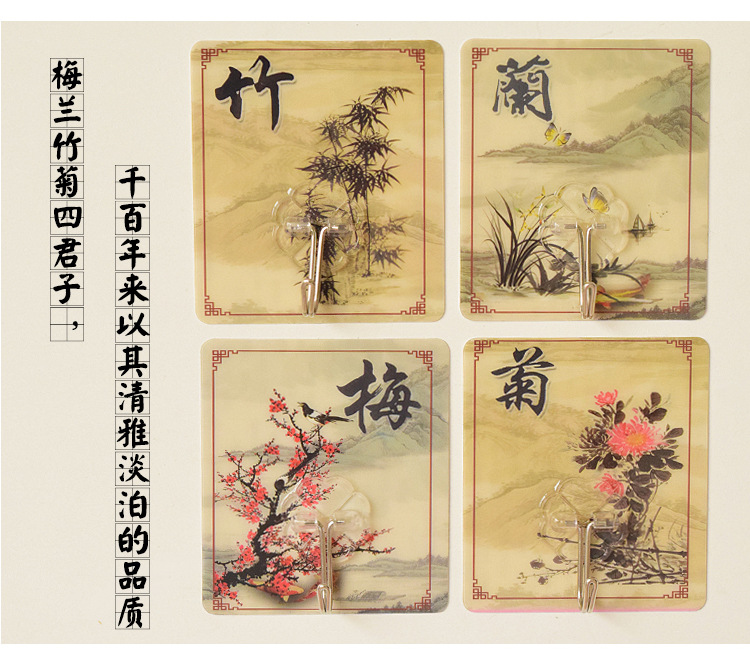 梅兰竹菊四君子，
千百年来以其清雅淡泊的品质
竹
蘭
梅
菊